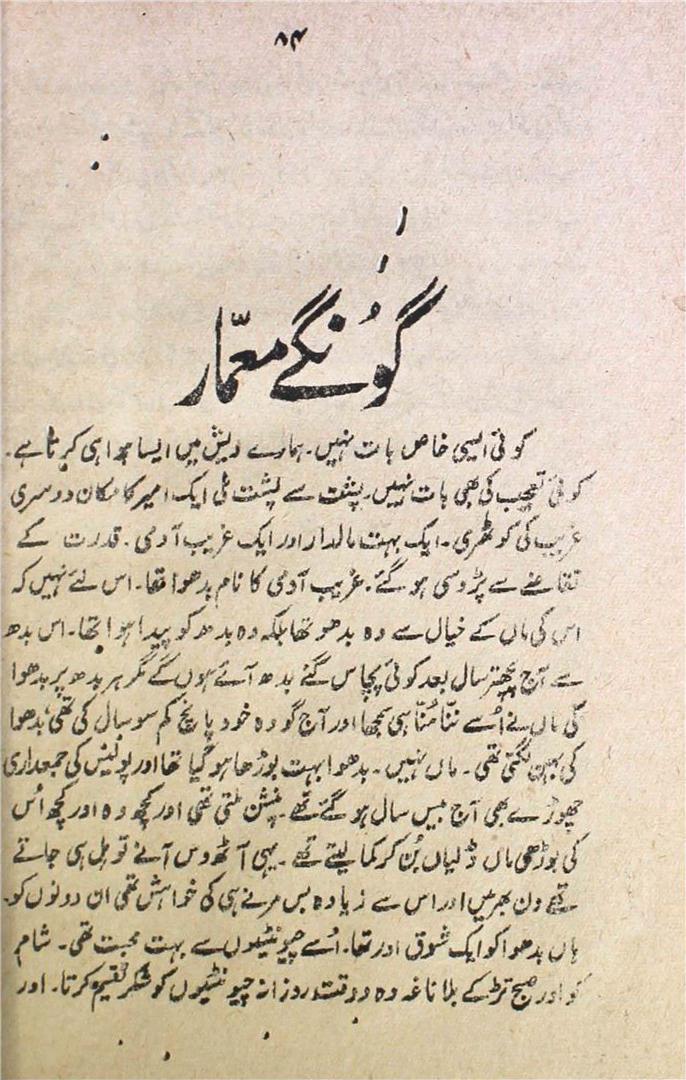 ۸۴
گونگے معمّار
کوئی ایسی خاص بات نہیں۔ ہمارے دیش میں ایسا ہوا ہی کرتا ہے۔
کوئی تعجب کی بھی بات نہیں۔ پشت سے پشت ملی ایک امیر کا مکان دوسری
غریب کی کوٹھری۔ ایک بہت مالدار اور ایک غریب آدمی۔ قدرت کے
تقاضے سے پڑوسی ہو گئے۔ غریب آدمی کا نام بدھوا تھا۔ اس لئے نہیں کہ
اس کی ماں کے خیال سے وہ بدھو تھا بلکہ وہ بدھ کو پیدا ہوا تھا۔ اس بدھ
سے آج پچھتر سال بعد کوئی پچاس گئے بدھ آئے ہوں گے مگر ہر بدھ پر بدھوا
کی ماں نے اُسے ننّا مُنّا ہی سمجھا اور آج گو وہ خود پانچ کم سو سال کی تھی بُدھوا
کی بہن لگتی تھی۔ ماں نہیں۔ بدھوا بہت بوڑھا ہو گیا تھا اور پولیس کی جمعداری
چھوڑے بھی آج بیس سال ہو گئے تھے۔ پنشن ملتی تھی اور کچھ وہ اور کچھ اُس
کی بوڑھی ماں ڈلیاں بُن کر کما لیتے تھے۔ یہی آٹھ دس آنے تو مل ہی جاتے
تھے دن بھر میں اور اس سے زیادہ بس مرنے ہی کی خواہش تھی ان دونوں کو۔
ہاں بدھوا کو ایک شوق اور تھا۔ اُسے چیونٹیوں سے بہت محبت تھی۔ شام
کو اور صبح تڑکے بلا ناغہ وہ دو وقت روزانہ چیونٹیوں کو شکر تقسیم کرتا۔ اور